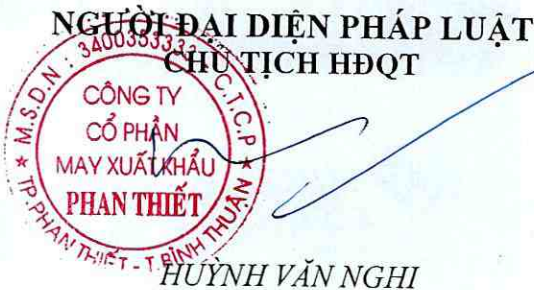 NGƯỜI ĐẠI DIỆN PHÁP LUẬT
CHỦ TỊCH HĐQT
M.S.D.N : 3400353332 C.T.C.P
CÔNG TY
CỔ PHẦN
MAY XUẤT KHẨU
PHAN THIẾT
TP. PHAN THIẾT - T. BÌNH THUẬN
HUỲNH VĂN NGHI